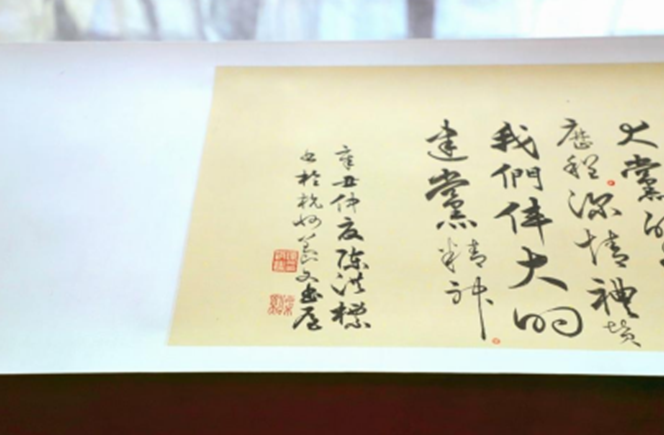 大黨的
歷程深情禮讚
我們偉大的
建黨精神
辛丑仲夏陈洪標
書於杭州